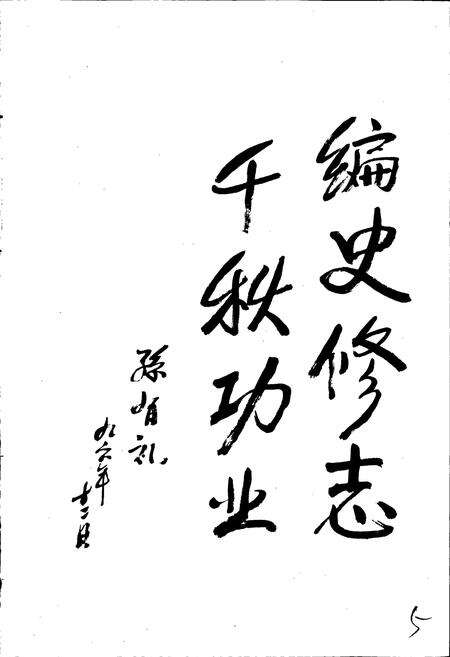 编史修志
千秋功业
孙有礼
九六年
十二月
5